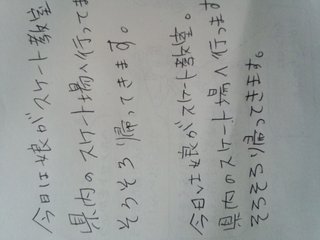 今日は娘がスケート教室
県内のスケート場へ行ってま
そろそろ帰ってきます。
今日は娘がスケート教室。
県内のスケート場へ行ってます
そろそろ帰ってきます。